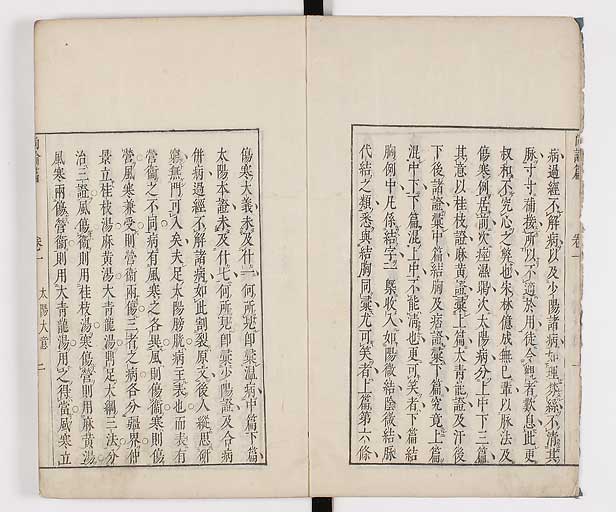 病過經不解病以及少陽諸病如理棼絲不清其
脉寸寸補接所以不適於用徒令觀者歎息此更
叔和不究心之弊也朱林億成無已輩以脉法及
傷寒例居前次痙濕暍次太陽病分上中下三篇
其意以桂枝證麻黃證彚上篇大青龍證及汗後
下後諸證彚中篇結胸及痞證彚下篇究竟上篇
混中下下篇混上中不能清也更可笑者下篇結
胸例中凡係結字一槩收入如陽微結陰微結脉
代結之類悉與結胸同彚尤可笑者上篇第六條
傷寒大義未及什二何所見即彚溫病中篇下篇
太陽本證未及什七何所見即彚少陽證及合病
併病過經不解諸病如此割裂原文後人縱思研
窮無門可入矣夫足太陽膀胱病主表也而表有
營衞之不同病有風寒之各異風則傷衞寒則傷
營風寒兼受則營衞兩傷三者之病各分疆界仲
景立桂枝湯麻黃湯大青龍湯鼎足大綱三法分
治三證風傷衞則用桂枝湯寒傷營則用麻黃湯
風寒兩傷營衞則用大青龍湯用之得當風寒立
尚論篇 卷一 太陽大意 二